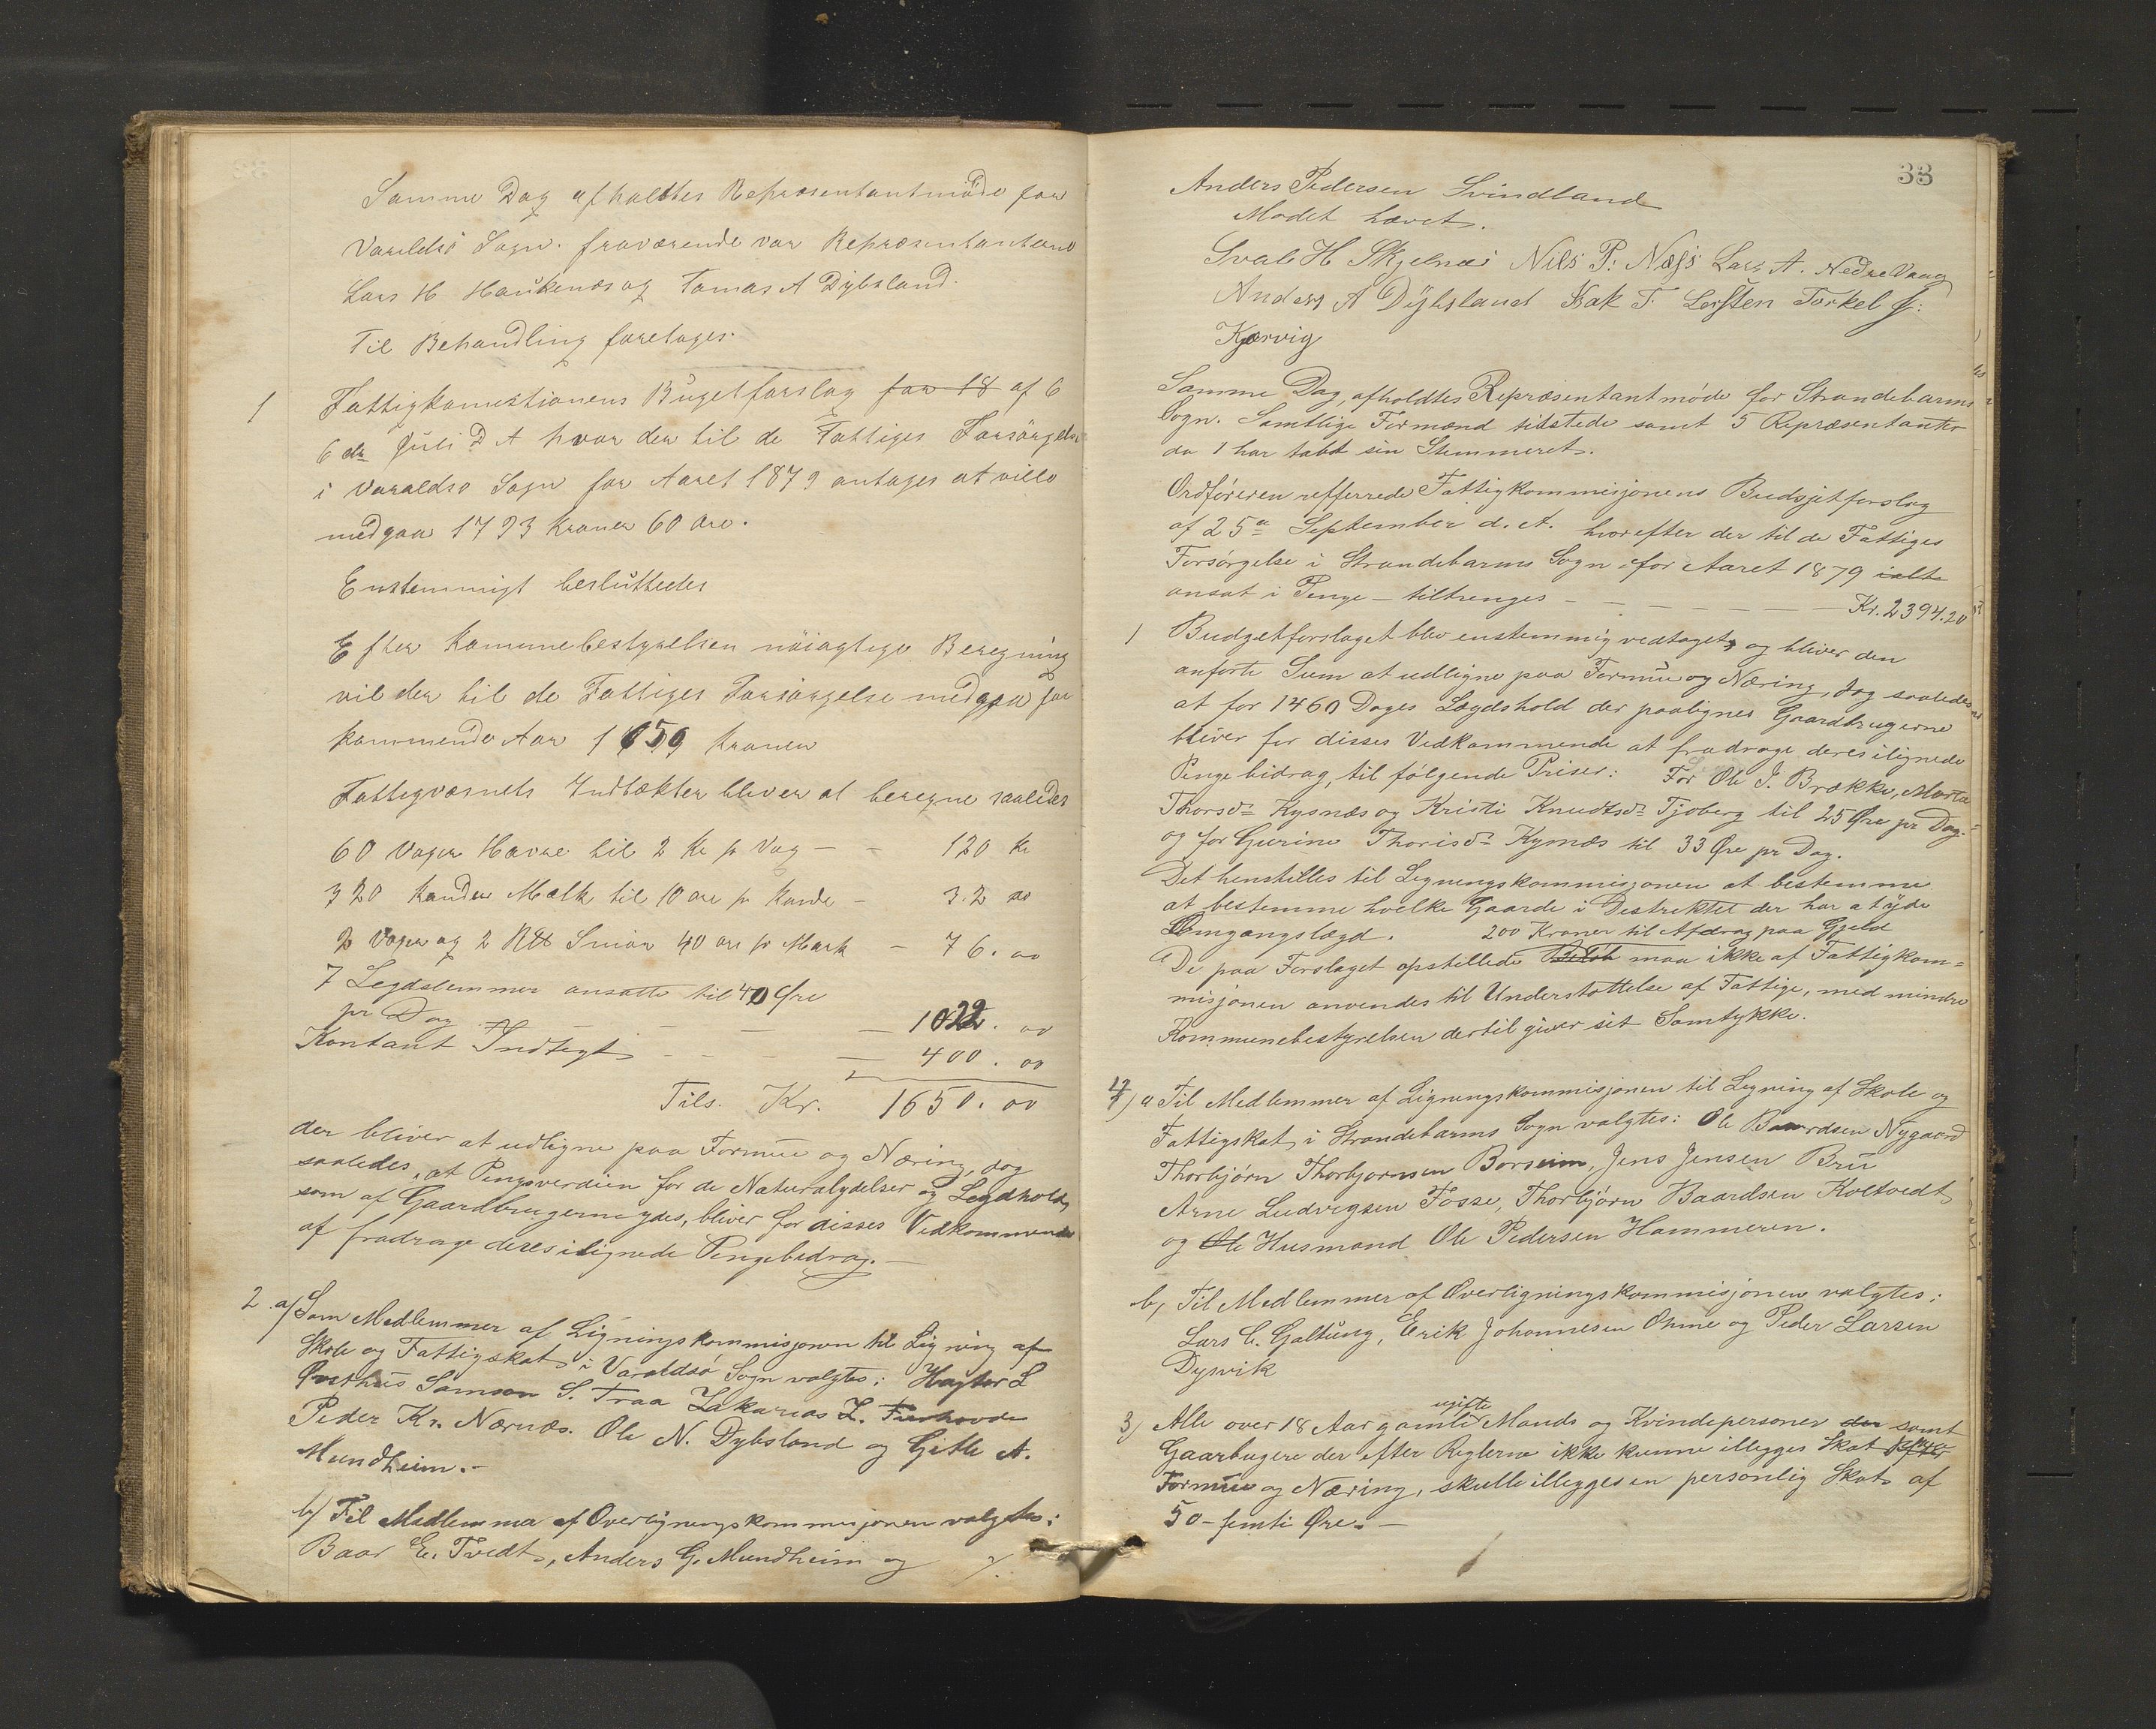 Samme Dag afholdtes Repræsentantmøde for
Varaldsö Sogn. fraværende var Repræsentanterne
Lars H Haukenæs og Tomas A Dybsland.
Til Behandling foretages.
1 Fattigkomistionens Bugetforslag for 18 af 6
6 de Juli D A hvor der til de Fattiges Forsörgelse
i Varaldsö Sogn for Aaret 1879 antages at ville
medgaa 1793 Kroner 60 Øre.
Enstemmigt besluttedes
Efter Kommunebestyrelsen nöiagtige Beregning
vil der til de Fattiges Forsörgelse medgaa for
kommende Aar 1650 Kroner
Fattigvæsnets Indtækter bliver at beregne saaledes
60 Vager Havre til 2 Kr pr Vag – – 120 Kr
320 Kander Mælk til 10 øre pr Kande – 32 00
2 Vager og 2 Smör 40 øre pr Mark – 76.00
7 Legdslemmer ansatte til 40 Øre
pr Dag – – – – 1022.00
Kontant Indtegt – – – – 400.00
Tils. Kr. 1650.00
der bliver at udligne paa Formue og Næring, dog
saaledes, at Pengeverdien for de Naturalydelser og Legdhold,
som af Gaardbrugerne ydes, bliver for disses Vedkommende
af fradrage deres ilignede Pengebidrag.–
2 a/ Som Medlemmer af Ligningskommisjonen til Ligning af
Skole og Fattigskat i Varaldsö Sogn valgtes: Hagtor L
Qvithus Samson S. Traa Zakarias Z.
Peder Kr. Nærnæs. Ole N. Dybsland og Gitle A.
Mundheim.–
b/ Til Medlemmer af Overligningskommisjonen valgtes:
Baar E. Tvedt, Anders G. Mundheim og ./.
33
Anders Pedersen Svindland
Modet hævet.
Sval H Skjelnæs Nils P. Næss Lars A. Nedre Vaag
Anders A Dybsland Isak T. Torkel J.
Kjærvig
Samme Dag, afholdtes Repræsentantmøde for Strandebarms
Sogn. Samtlige Formænd tilstede samt 5 Repræsentanter
da 1 har tabt sin Stemmeret.
Ordføreren refferrede Fattigkommisjonens Budsjetforslag
af 25 September d. A. hvorefter der til de Fattiges
Forsörgelse i Strandebarms Sogn for Aaret 1879 ialt
ansat i Penge – tiltrenges – – – – – – Kr. 2394.20
1 Budgetforslaget blev enstemmig vedtaget og bliver den
anførte Sum at udligne paa Formue og Næring, dog saaledes
at for 1460 Dages Lægdshold der paalignes Gaardbrugerne
bliver for disses Vedkommende at fradrage deres ilignede
Pengebidrag, til følgende Priser: For Ole J. Brække, Marta
Thorsdr Kysnæs og Kristi Knudtsdr Tjoberg til 25 Øre pr Dag.
og for Gurine Thorisdr Kysnæs til 33 Øre pr Dag.
Det henstilles til Legningskommisjonen at bestemme
at bestemme hvelke Gaarde i Destriktet der har at yde
Omgangslægd. 200 Kroner til Afdrag paa Gjeld
De paa Forslaget opstillede Beløb maa ikke af Fattigkom=
misjonen anvendes til Understøttelse af Fattige, med mindre
Kommunebestyrelsen dertil giver sit Samtykke.
2) a Til Medlemmer af Ligningskommisjonen til Legning af Skole og
Fattigskat, i Strandebarms Sogn valgtes: Ole Baardsen Nygaard
Thorbjörn Thorbjørnsen Børseim, Jens Jensen Bru
Arne Ludvigsen Fosse, Thorbjörn Baardsen Koltvedt
og Ole Husmand Ole Pedersen Hammeren.
b, Til Medlemmer af Overligningskommisjonen valgtes:
Lars C. Galtung, Erik Johannesen Ohme og Peder Larsen
Dysvik
ugifte
3) Alle over 18 Aar gamle Mands og Kvindepersoner der samt
Gaarbugere der efter Reglerne ikke kunne illegges Skat efter
Formue og Næring, skulle illegges en personlig Skat af
50 – femti Øre.–